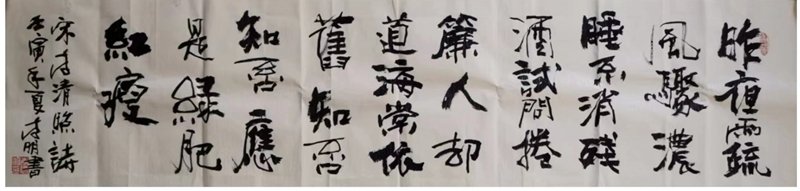 昨夜雨疏
风驟濃
睡不消殘
酒試問捲
簾人却
道海棠依
舊知否
知否應
是緑肥
紅瘦
宋李清照詩
壬寅年夏李明書